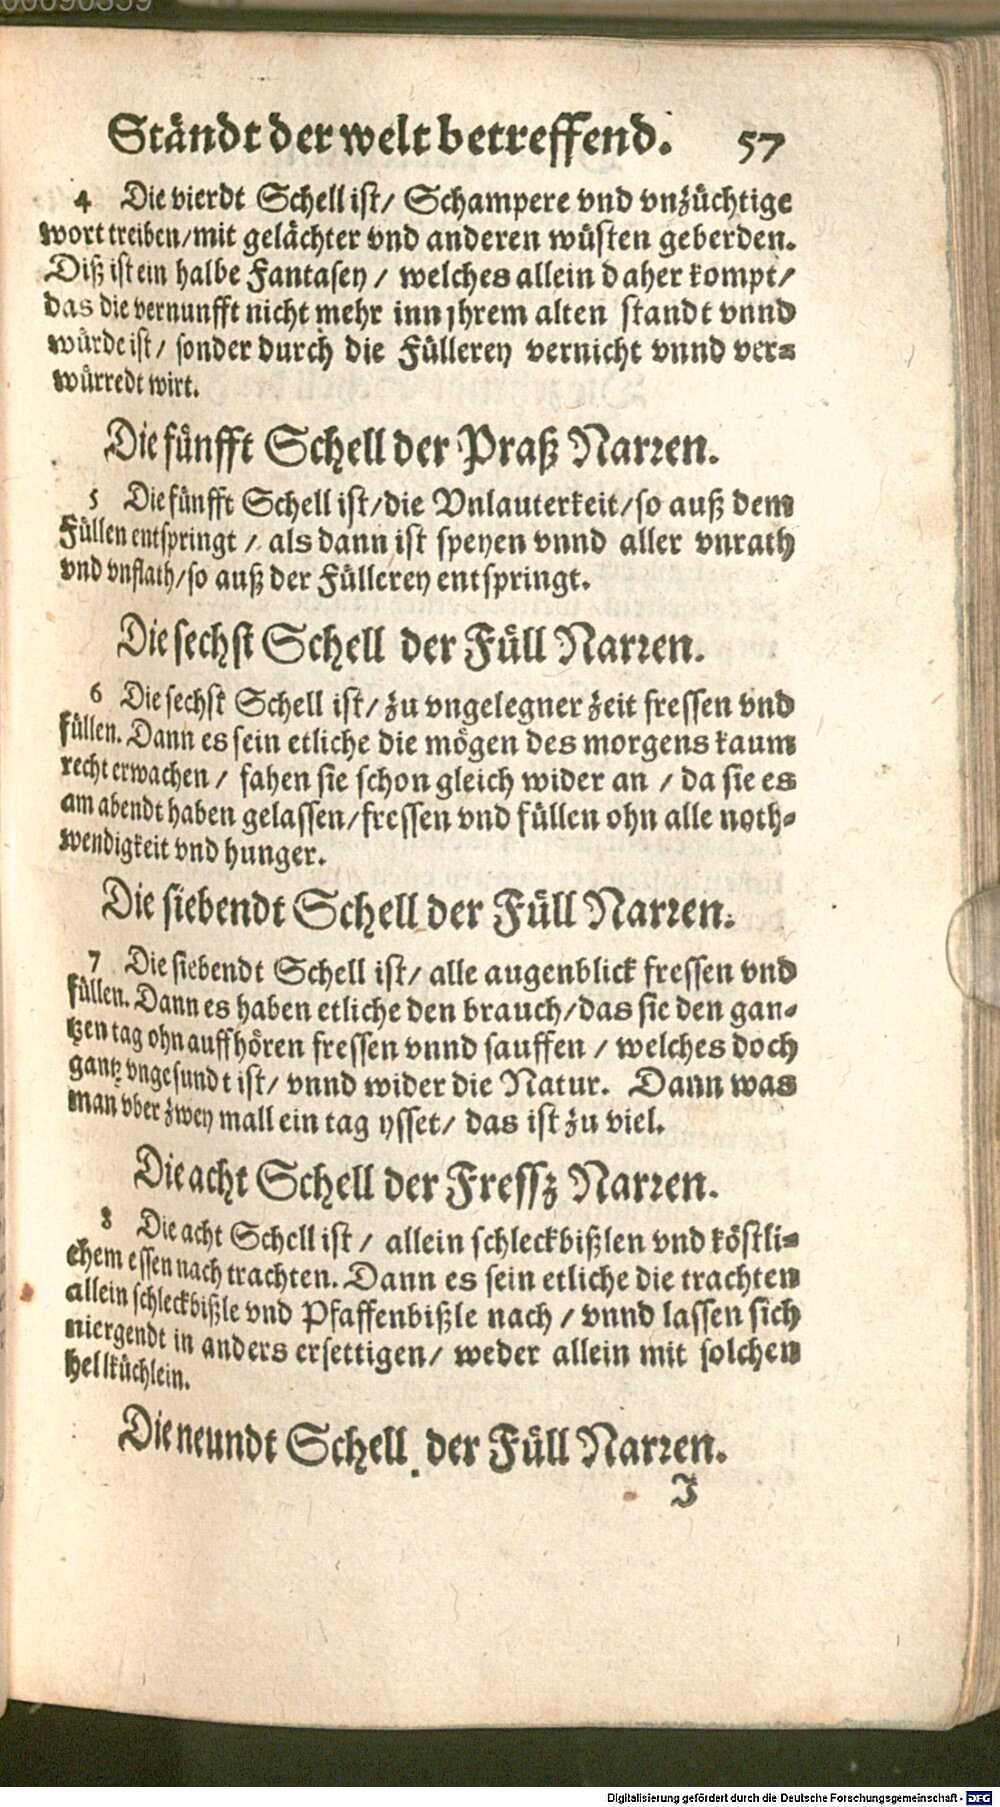 00090359
Ständt der welt betreffend. 57
4 Die vierdt Schell ist/ Schampere vnd vnzüchtige
wort treiben/mit gelächter vnd anderen wüsten geberden.
Diß ist ein halbe Fantasey/ welches allein daher kompt/
das die vernunfft nicht mehr inn jhrem alten standt vnnd
würde ist/ sonder durch die Füllerey vernicht vnnd ver=
würredt wirt.
Die fünfft Schell der Praß Narren.
5 Die fünfft Schell ist/die Vnlauterkeit/so auß dem
Füllen entspringt/ als dann ist speyen vnnd aller vnrath
vnd vnflath/so auß der Füllerey entspringt.
Die sechst Schell der Füll Narren.
6 Die sechst Schell ist/ zu vngelegner zeit fressen vnd
füllen. Dann es sein etliche die mögen des morgens kaum
recht erwachen/ fahen sie schon gleich wider an/ da sie es
am abendt haben gelassen/fressen vnd füllen ohn alle noth=
wendigkeit vnd hunger.
Die siebendt Schell der Füll Narren.
7 Die siebendt Schell ist/ alle augenblick fressen vnd
füllen. Dann es haben etliche den brauch/das sie den gan=
tzen tag ohn auffhören fressen vnnd sauffen/ welches doch
gantz vngesundt ist/ vnnd wider die Natur. Dann was
man vber zwey mall ein tag ysset/ das ist zu viel.
Die acht Schell der Fressz Narren.
8 Die acht Schell ist/ allein schleckbißlen vnd köstli=
chem essen nach trachten. Dann es sein etliche die trachten
allein schleckbißle vnd Pfaffenbißle nach/ vnnd lassen sich
niergendt in anders ersettigen/ weder allein mit solchen
hellküchlein.
Die neundt Schell der Füll Narren.
J
Digitalisierung gefördert durch die Deutsche Forschungsgemeinschaft - DFG